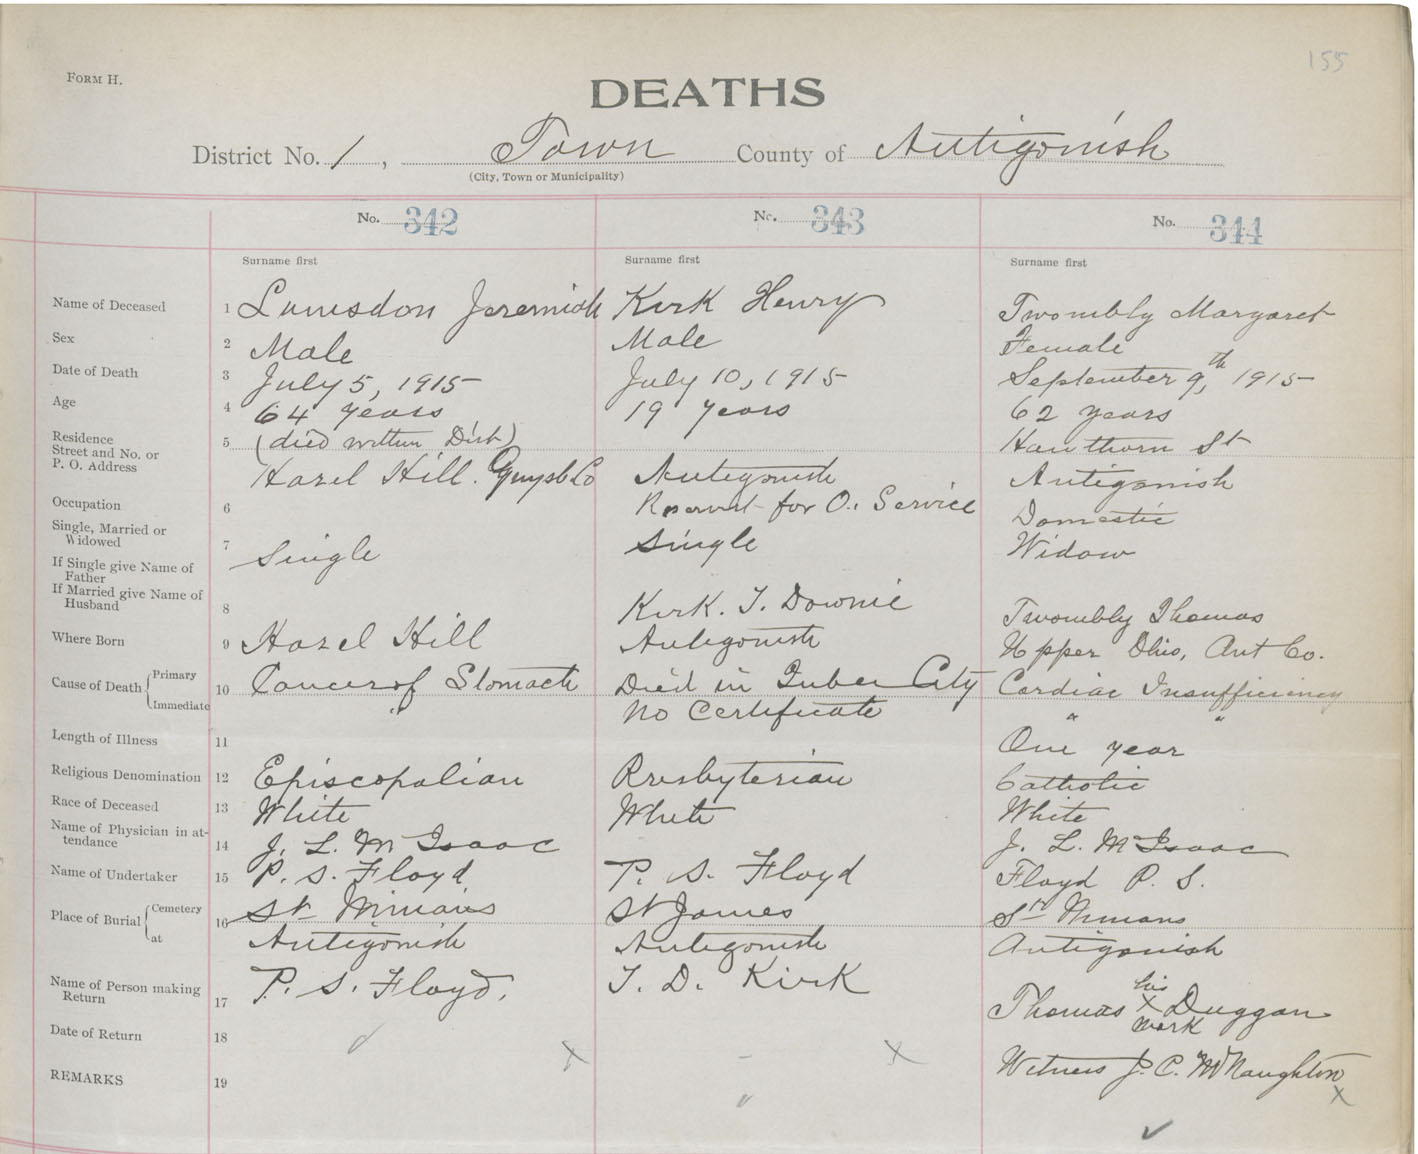 155
FORM H.
DEATHS
District No. 1, Town County of Antigonish
(City, Town or Municipality)
No. 342 No. 343 No. 344
Surname first Surname first Surname first
Name of Deceased 1 Lumsdon Jeremiah Kirk Henry Twombly Margaret
Sex 2 Male Male Female
Date of Death 3 July 5, 1915 July 10, 1915 September 9th, 1915
Age 4 64 years 19 years 62 years
Residence Street and No. or P. O. Address 5 (died within Dist) Hawthorn St
Hazel Hill. Guysb Co Antigonish Antigonish
Occupation 6 Reservist for O. Service Domestic
Single, Married or Widowed 7 Single Single Widow
If Single give Name of Father
If Married give Name of Husband 8 Kirk. T. Downie Twombly Thomas
Where Born 9 Hazel Hill Antigonish Upper Ohio, Ant Co.
Cause of Death { Primary 10 Cancer of Stomach Died in Quebec City Cardiac Insufficiency
Immediate " No Certificate " "
Length of Illness 11 One year
Religious Denomination 12 Episcopalian Presbyterian Catholic
Race of Deceased 13 White White White
Name of Physician in attendance 14 J. L. McIsaac J. L. McIsaac
Name of Undertaker 15 P. S. Floyd P. S. Floyd Floyd P. S.
Place of Burial { Cemetery 16 St Ninians St James St Ninians
at Antigonish Antigonish Antigonish
Name of Person making Return 17 P. S. Floyd. T. D. Kirk Thomas his X mark Duggan
Date of Return 18
X X Witness J. C. McNaughton
REMARKS 19 X